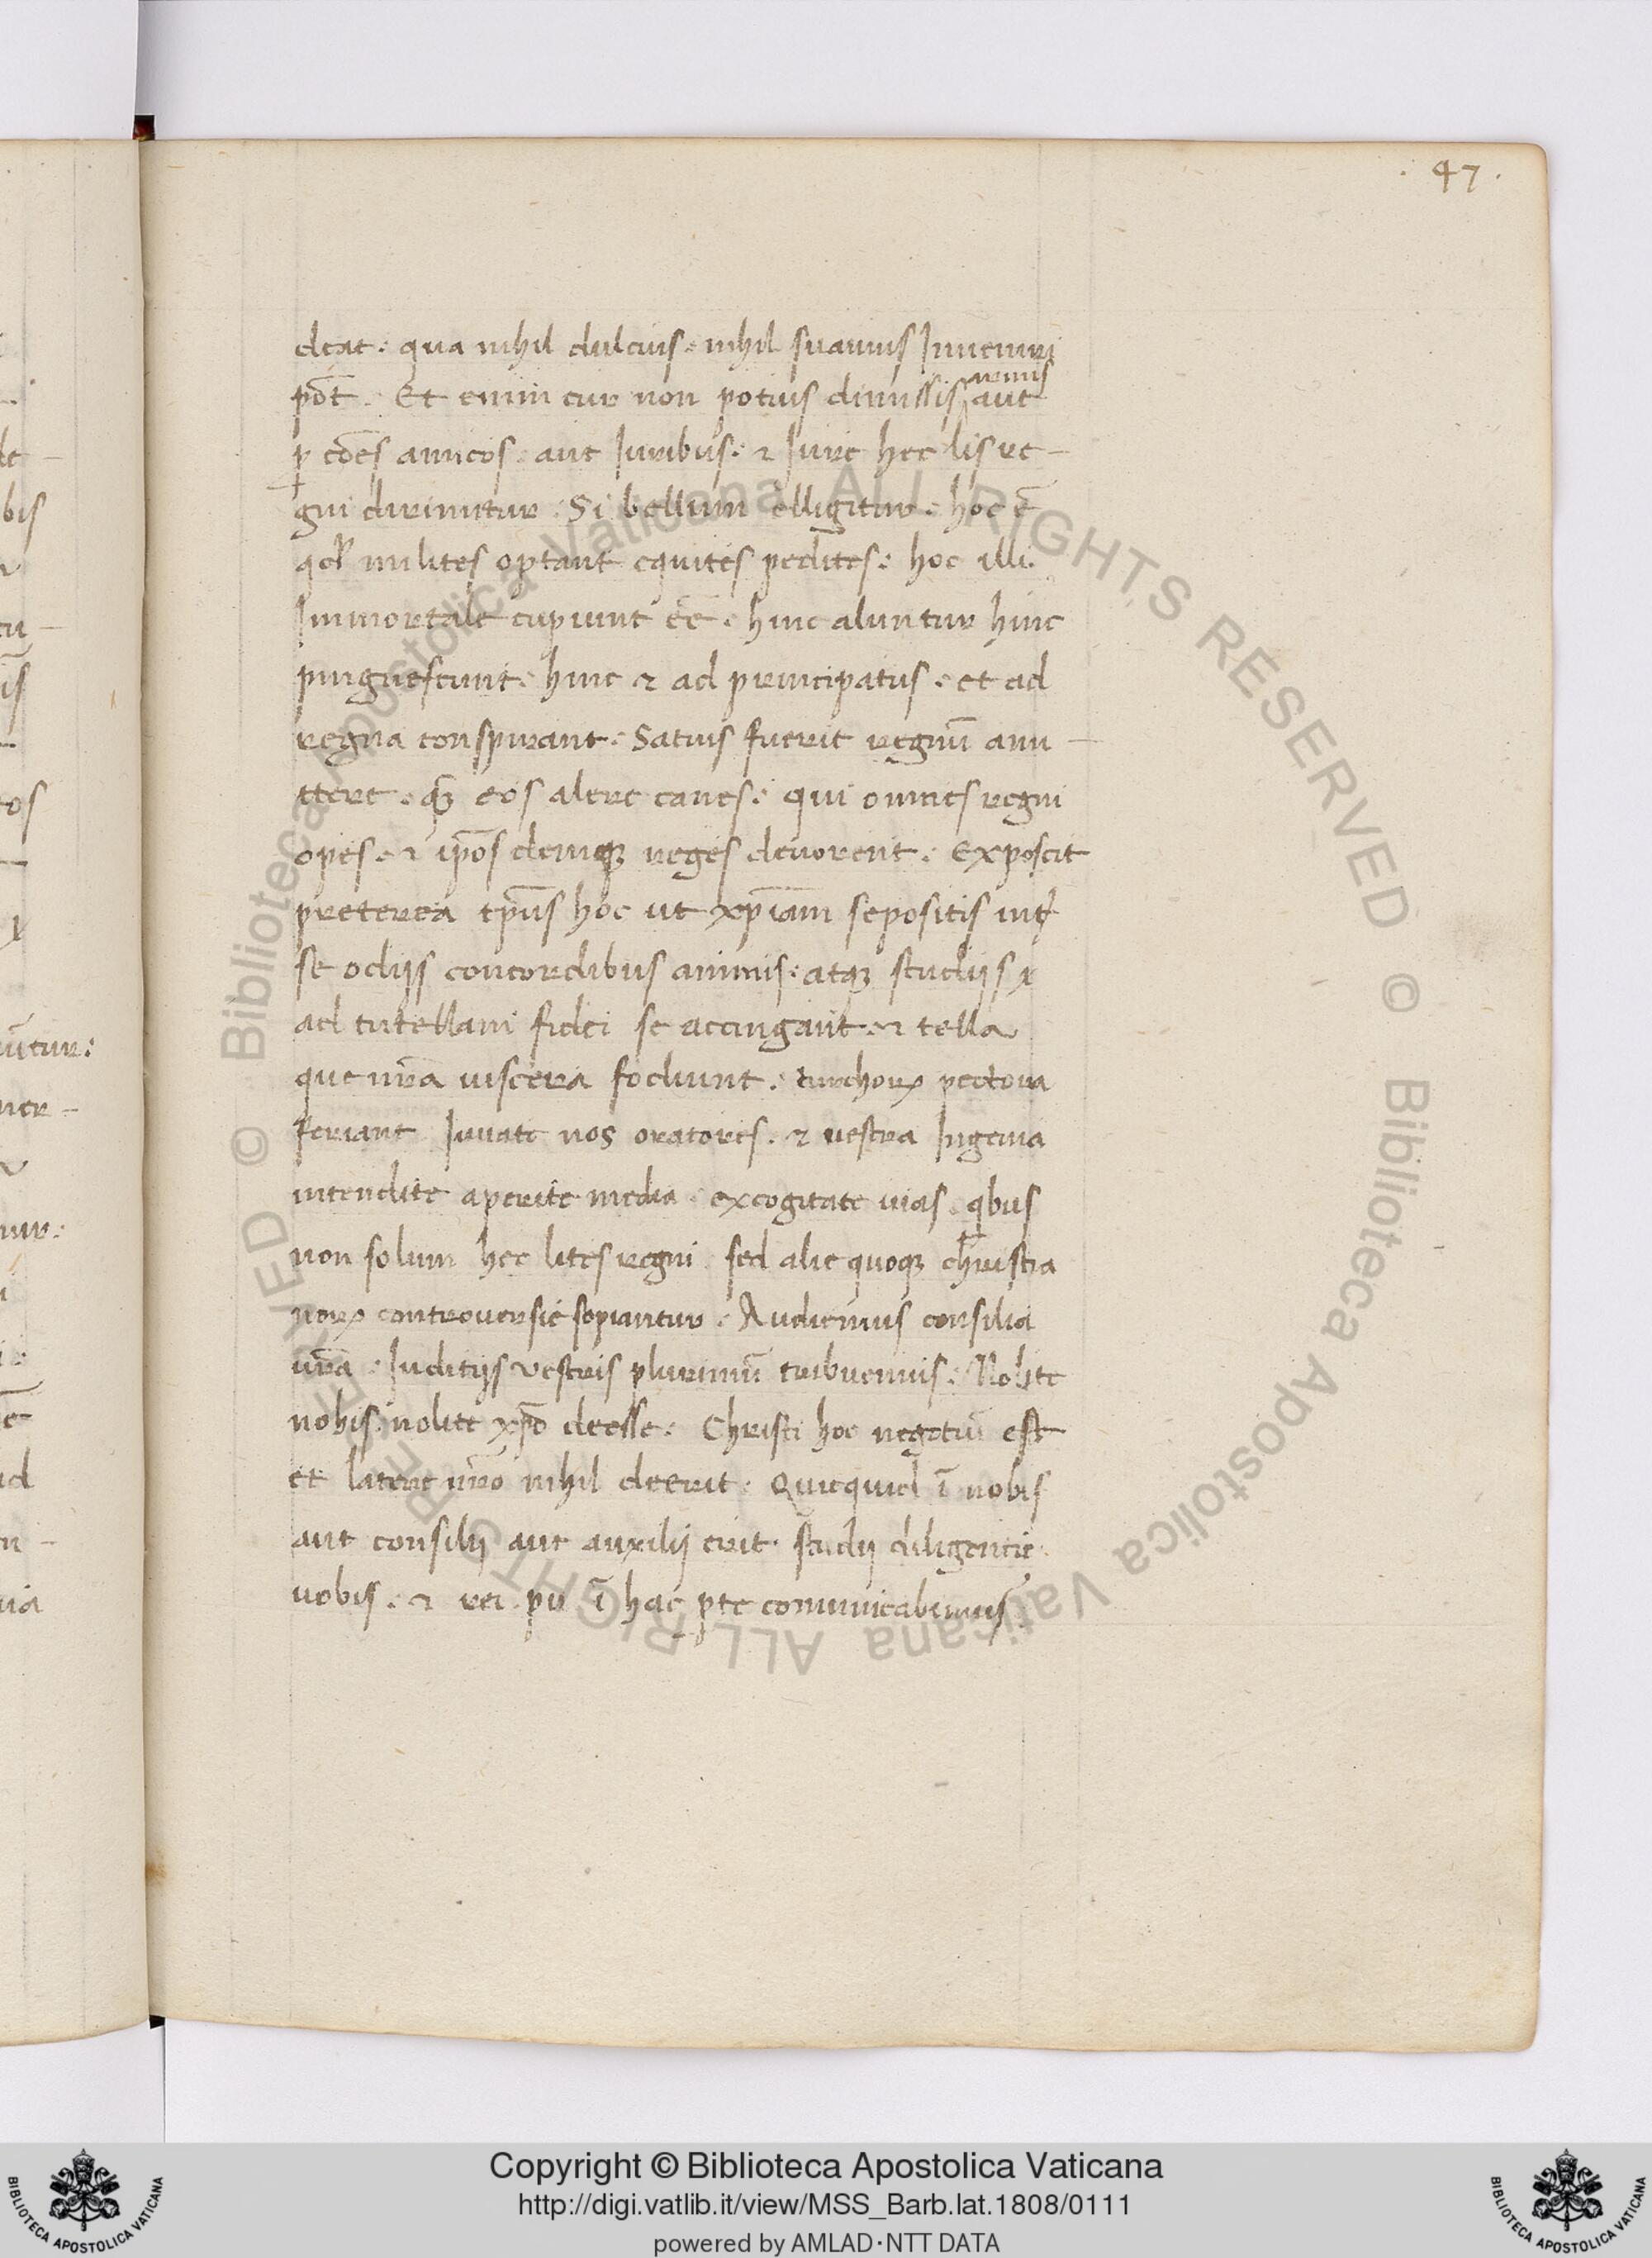 . 47 .
deat. qua nihil dulcius. nihil suavius Inveniri
armis
põt. Et enim cur non potius dimissis aut
p cões amicos. aut Iuribus. ⁊ Iure hec lis re-
gni dirimitur. Si bellum elligitur. hoc ē
qd milites optant equites pedites. hoc illi
Immortale cupiunt ēē. hinc aluntur hinc
pinguescunt. hinc ⁊ ad principatus. et ad
regna conspirant. Satius fuerit regnū ami-
ttere. q̃ eos alere canes. qui omnes regni
opes. ⁊ ip̃os deniqꝫ reges devorent. Exposcit
preterea tp̃us hoc ut xp̃iani sepositis int
se odijs concordibus animis. atqꝫ studijs
ad tutellam fidei se accingant. ⁊ tella
que nr̃a viscera fodiunt. turchoꝝ pectora
feriant Iuvate nos oratores. ⁊ vestra Ingenia
intendite aperite media. excogitate vias. qbus
non solum hec lites regni. sed alie quoqꝫ christia
noꝝ controversie sopiantur. Audiemus consilia
vr̃a. Iuditijs vestris plurimū tribuemus. Nolite
nobis. nolite xp̃o deesse. Christi hoc negotiū est
et latere nr̃o nihil deerit. Quicquid ī nobis
aut consilij aut auxilij erit. studij diligentie
vobis. ⁊ rei pu ī hac pte comunicabimus.
Copyright © Biblioteca Apostolica Vaticana
http://digi.vatlib.it/view/MSS_Barb.lat.1808/0111
powered by AMLAD·NTT DATA
BIBLIOTECA APOSTOLICA VATICANA
BIBLIOTECA APOSTOLICA VATICANA
© Biblioteca Apostolica Vaticana ALL RIGHTS RESERVED © Biblioteca Apostolica Vaticana ALL RIGHTS RESERVED